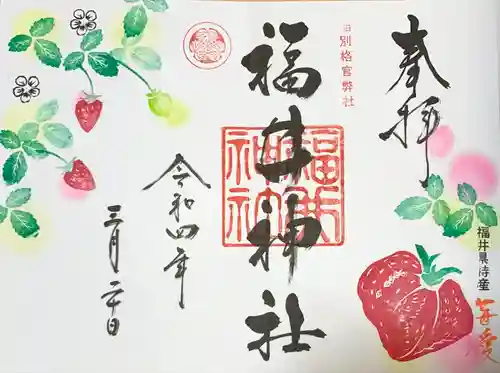 奉拝
旧別格官幣社
福井神社
福井神社
令和四年
三月二十日
福井県特産